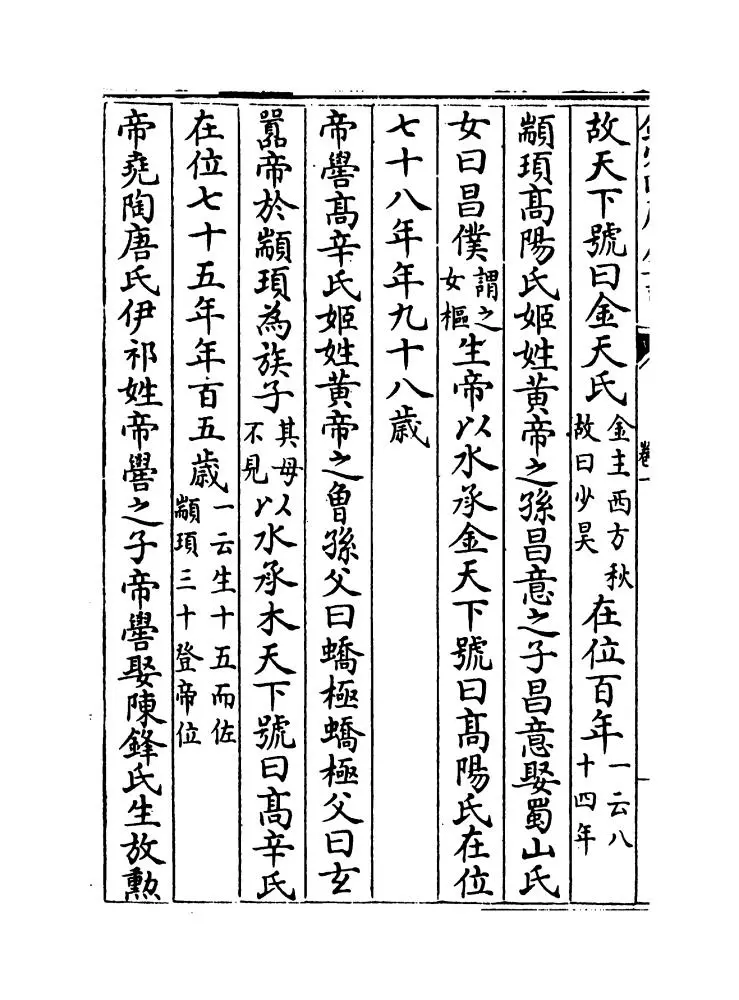 故天下號曰金天氏金主西方秋故曰少昊在位百年一云八十四年
顓頊髙陽氏姬姓黃帝之孫昌意之子昌意娶蜀山氏
女曰昌僕謂之女樞生帝以水承金天下號曰髙陽氏在位
七十八年年九十八歲
帝嚳髙辛氏姬姓黃帝之曾孫父曰蟜極蟜極父曰玄
囂帝於顓頊為族子其母不見以水承木天下號曰髙辛氏
在位七十五年年百五歲一云生十五而佐顓頊三十登帝位
帝堯陶唐氏伊祁姓帝嚳之子帝嚳娶陳鋒氏生放勲
卷一